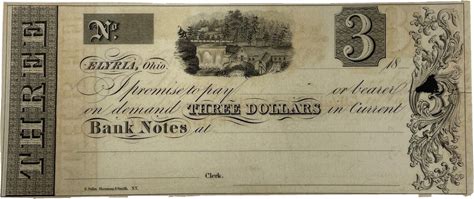 THREE
No.
3
ELYRIA, Ohio. 18
I promise to pay or bearer
on demand THREE DOLLARS in Current
Bank Notes at
Clerk.
N.Y.